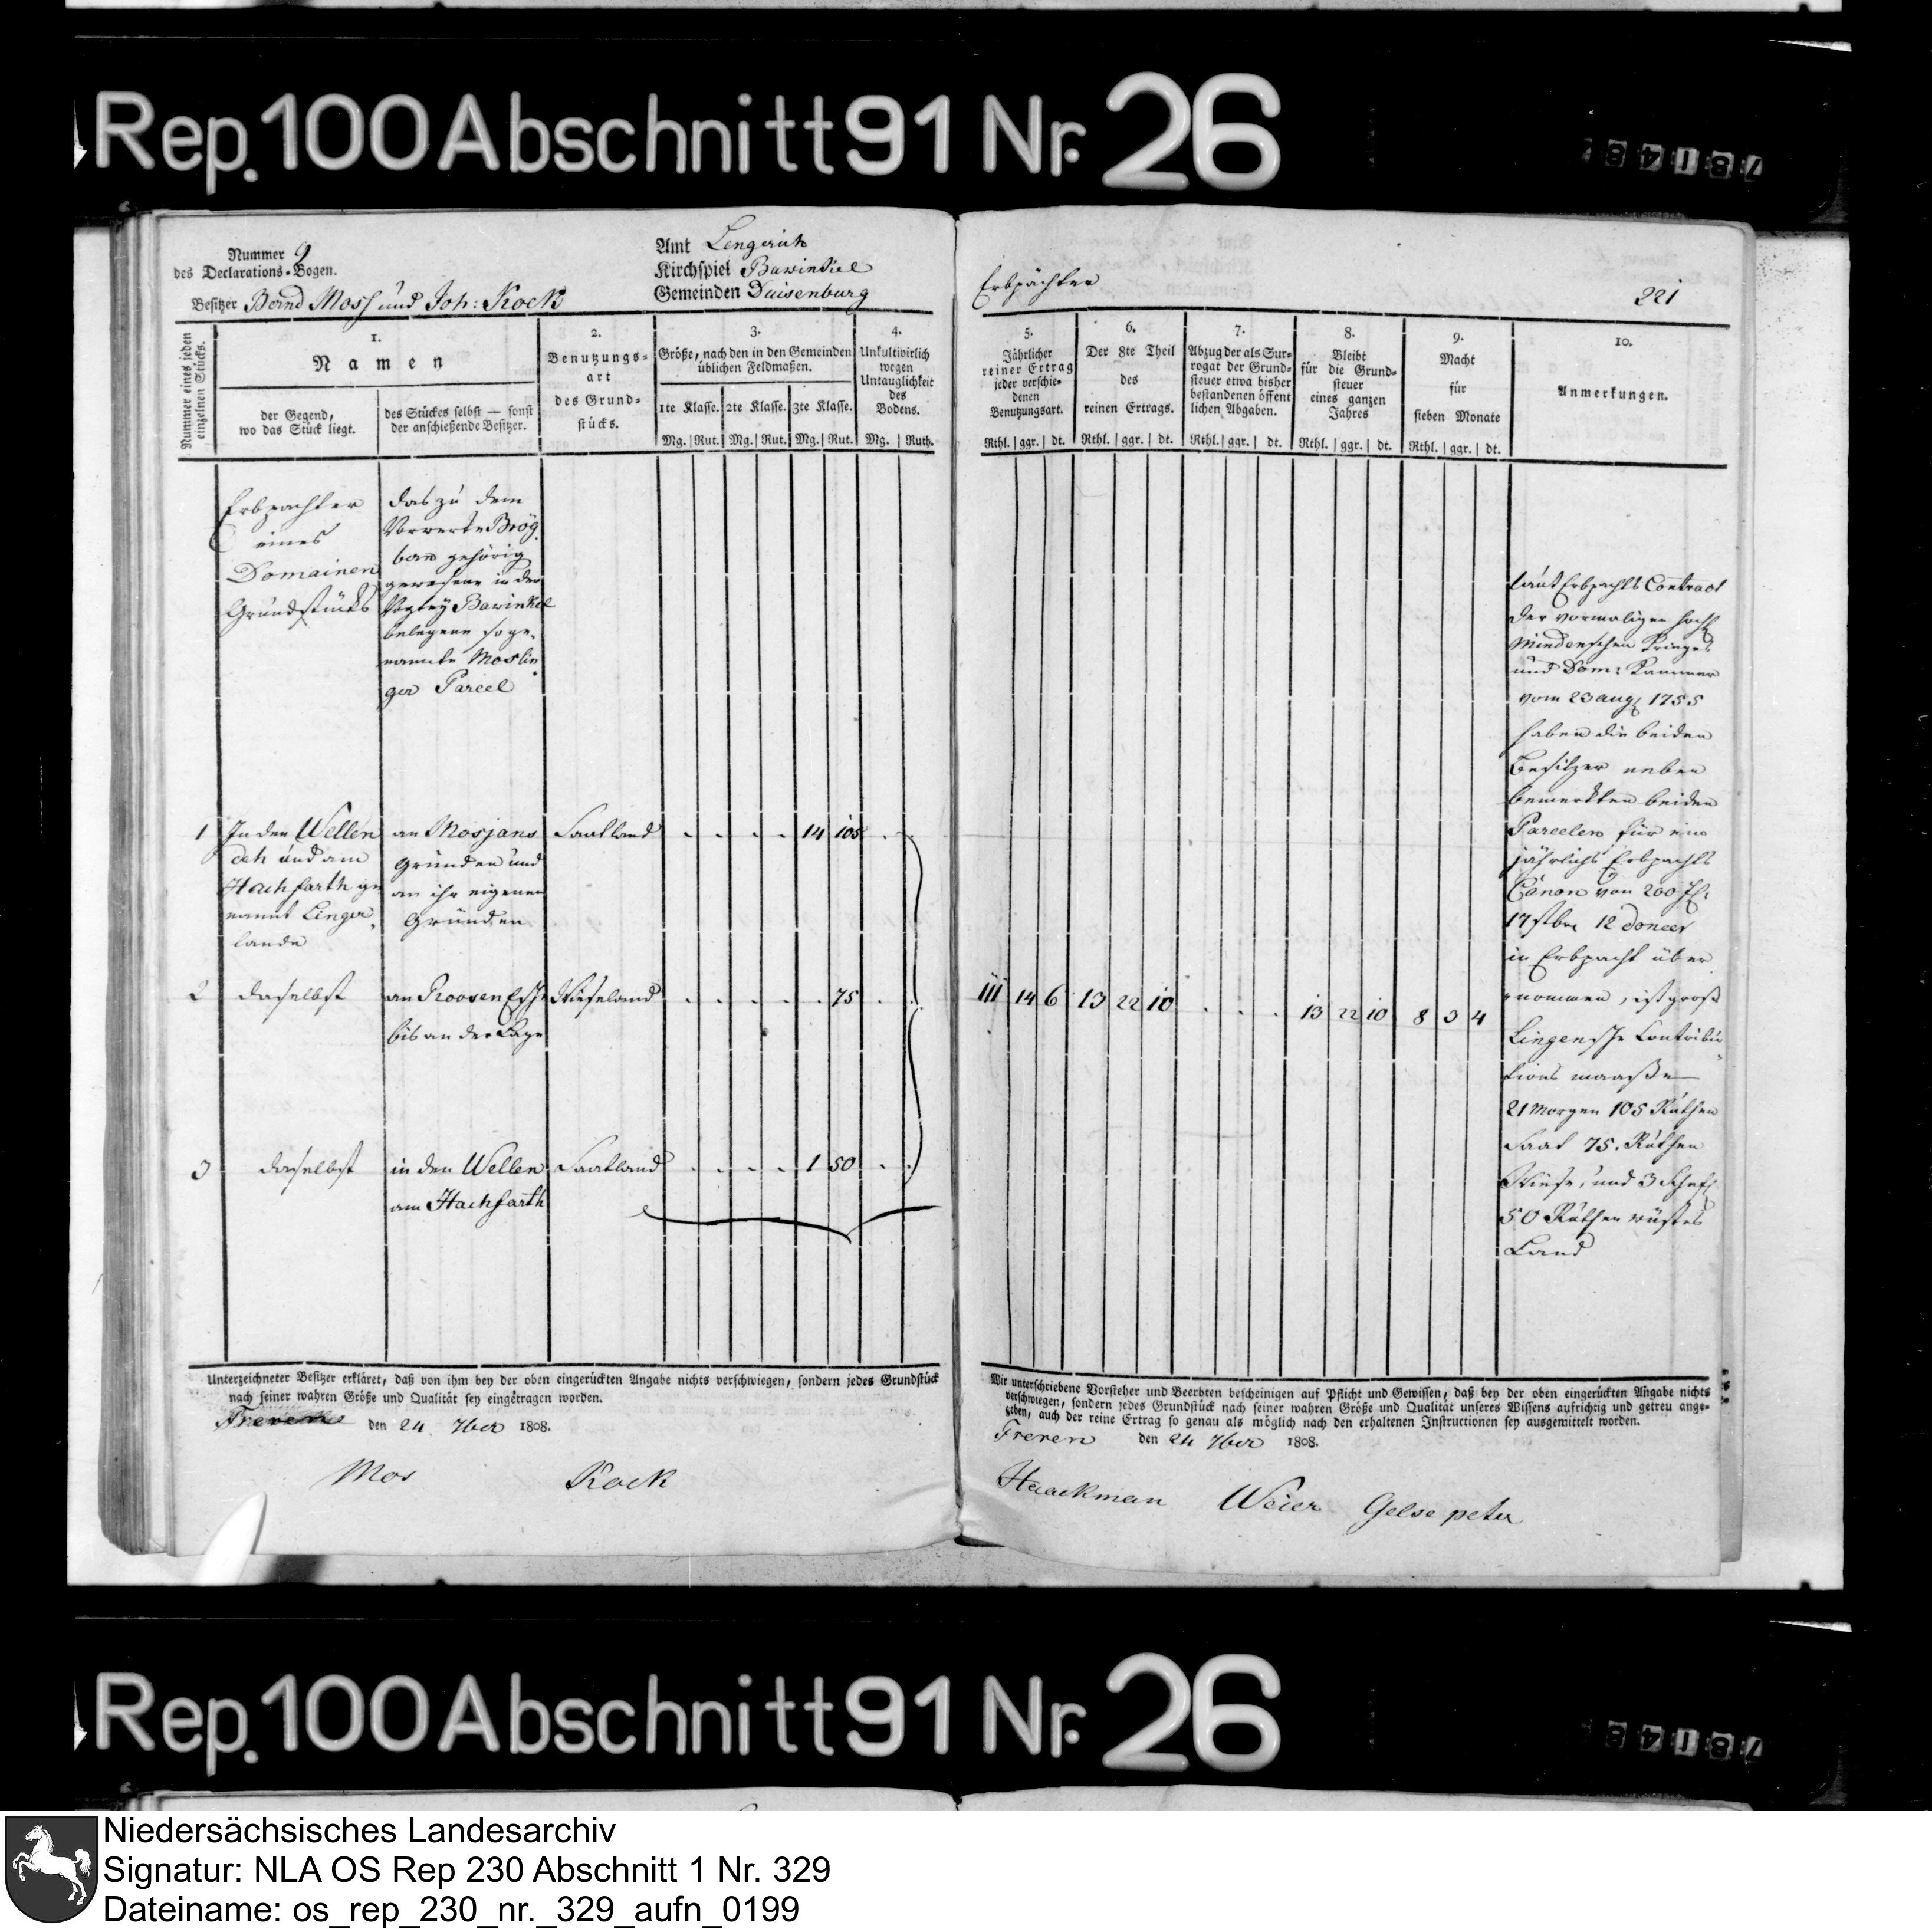 Rep. 100 Abschnitt 91 Nr. 26
78148
Nummer 9
des Declarations-Bogen.
Besitzer Bernd Moss und Joh: Kock
Amt Lengerich
Kirchspiel Bawinkel
Gemeinden Duisenburg
Erbpächter
221
Nummer eines jeden
einzelnen Stücks.
1.
Namen
der Gegend,
wo das Stück liegt.
des Stückes selbst — sonst
der anschießende Besitzer.
2.
Benutzungs-
art
des Grund-
stücks.
3.
Größe, nach den in den Gemeinden
üblichen Feldmaßen.
1te Klasse. 2te Klasse. 3te Klasse.
Mg. Rut. Mg. Rut. Mg. Rut.
4.
Unkultivirlich
wegen
Untauglichkeit
des
Bodens.
Mg. Ruth.
5.
Jährlicher
reiner Ertrag
jeder verschie-
denen
Benutzungsart.
Rthl. ggr. dt.
6.
Der 8te Theil
des
reinen Ertrags.
Rthl. ggr. dt.
7.
Abzug der als Sur-
rogat der Grund-
steuer etwa bisher
bestandenen öffent
lichen Abgaben.
Rthl. ggr. dt.
8.
Bleibt
für die Grund-
steuer
eines ganzen
Jahres
Rthl. ggr. dt.
9.
Macht
für
sieben Monate
Rthl. ggr. dt.
10.
Anmerkungen.
Erbpachter
eines
Domainen
Grundstücks
das zu dem
Vorwerke Brög
bern gehörig
gewesene in der
Vogtey Bawinkel
belegene soge-
nannte Moslin
ger Parcel
1 In den Wellen an Mosjans Saatland 14 105
deh und am Gründen und
Hachfarth ge an ihr eigenen
nannt Linger Gründen
lande
2 daselbst an Roosen Esch Wieseland 75
bis an der Lage
3 daselbst in den Wellen Saatland 1 50
am Hachfarth
111 14 6 13 22 10 13 22 10 8 3 4
laut Erbpachts Contract
der vormaligen hochl
Mindenschen Krieges
und Dom: Kammer
vom 23 aug 1755
haben die beiden
Besitzer neben
bemerkten beiden
Parcelen für ein
jährlichs Erbpachts
Canon von 200 fl:
17 stbr 12 Doneer
in Erbpacht über
nommen, ist groß
Lingensche Contribu
tions maaße
21 Morgen 105 Ruthen
Saat 75. Ruthen
Wiese, und 3 Schefl
50 Ruthen wüstes
Land
Unterzeichneter Besitzer erkläret, daß von ihm bey der oben eingerückten Angabe nichts verschwiegen, sondern jedes Grundstück
nach seiner wahren Größe und Qualität sey eingetragen worden.
Freren den 24 7ber 1808.
Mos Kock
Wir unterschriebene Vorsteher und Beerbten bescheinigen auf Pflicht und Gewissen, daß bey der oben eingerückten Angabe nichts
verschwiegen, sondern jedes Grundstück nach seiner wahren Größe und Qualität unseres Wissens aufrichtig und getreu ange-
geben, auch der reine Ertrag so genau als möglich nach den erhaltenen Instructionen sey ausgemittelt worden.
Freren den 24 7ber 1808.
Haackman Weier Gelse peter
Rep. 100 Abschnitt 91 Nr. 26
78148
Niedersächsisches Landesarchiv
Signatur: NLA OS Rep 230 Abschnitt 1 Nr. 329
Dateiname: os_rep_230_nr._329_aufn_0199